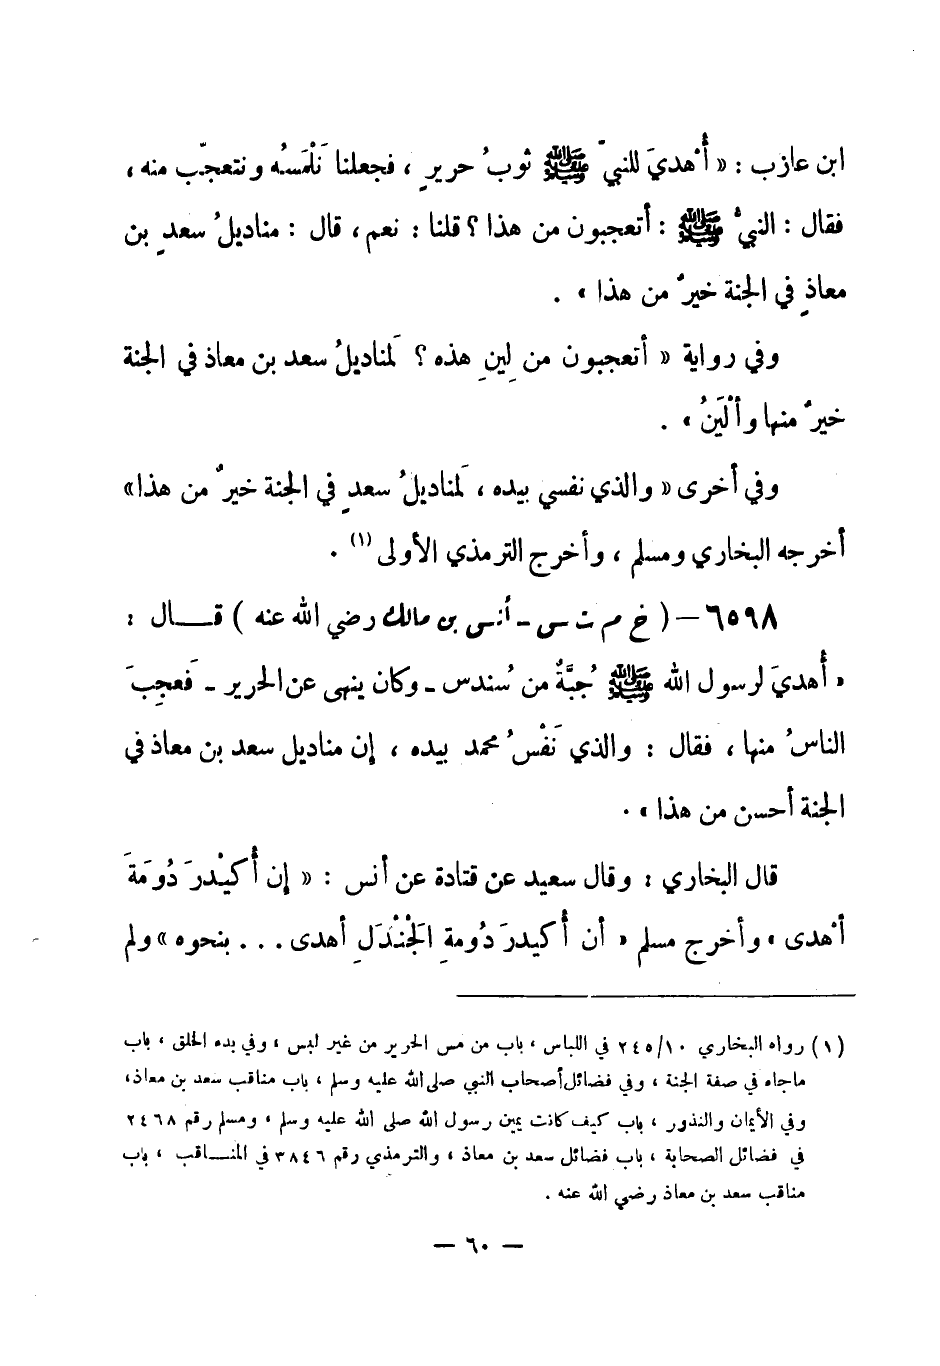 ابن عازب : « أُهْديَ للنبيّ ﷺ ثوبُ حريرٍ ، فجعلنا نَلْمَسُه ونتعجّب منه ،
فقال : النبيُّ ﷺ : أتعجبون من هذا ؟ قلنا : نعم ، قال : مناديلُ سعدٍ بن
معاذٍ في الجنة خيرٌ من هذا » .
وفي رواية « أتعجبون من لِينِ هذه ؟ لَمناديلُ سعد بن معاذ في الجنة
خيرٌ منها وأَلْيَنُ » .
وفي أخرى « والذي نفسي بيده ، لَمناديلُ سعدٍ في الجنة خيرٌ من هذا»
أخرجه البخاري ومسلم ، وأخرج الترمذي الأولى (١) .
٦٥٩٨ – ( خ م ت س – أنس بن مالك رضي الله عنه ) قـــال :
« أُهديَ لرسول الله ﷺ جُبَّةٌ من سُندس – وكان ينهى عن الحرير – فَعجِبَ
الناسُ منها ، فقال : والذي نَفْسُ محمد بيده ، إن مناديل سعد بن معاذ في
الجنة أحسن من هذا » .
قال البخاري : وقال سعيد عن قتادة عن أنس : « إن أُكَيْدرَ دُومَةَ
أهْدى » وأخرج مسلم « أن أُكيدرَ دُومةِ الجَنْدَلِ أهدى . . . بنحوه » ولم
(١) رواه البخاري ٢٤٥/١٠ في اللباس ، باب من مس الحرير من غير لبس ، وفي بدء الخلق ، باب
ماجاء في صفة الجنة ، وفي فضائل أصحاب النبي صلى الله عليه وسلم ، باب مناقب سعد بن معاذ،
وفي الأيمان والنذور ، باب كيف كانت يمين رسول الله صلى الله عليه وسلم ، ومسلم رقم ٢٤٦٨
في فضائل الصحابة ، باب فضائل سعد بن معاذ ، والترمذي رقم ٣٨٤٦ في المنـــاقب ، باب
مناقب سعد بن معاذ رضي الله عنه .
– ٦٠ –